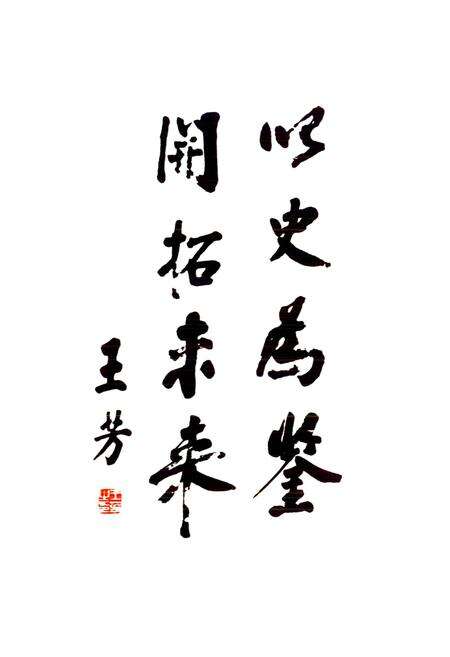 以史為鑒
開拓未来
王芳